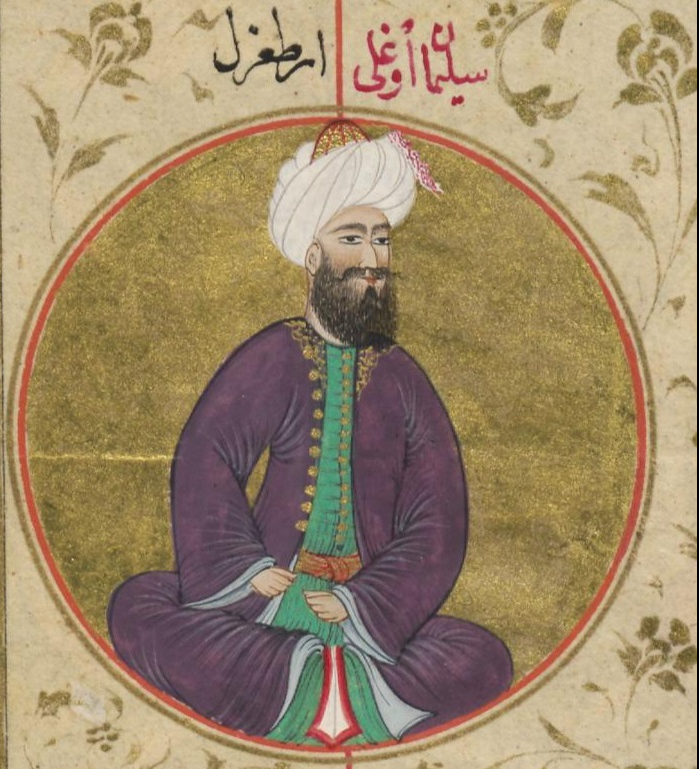 سليمان أوغلى ارطغرل